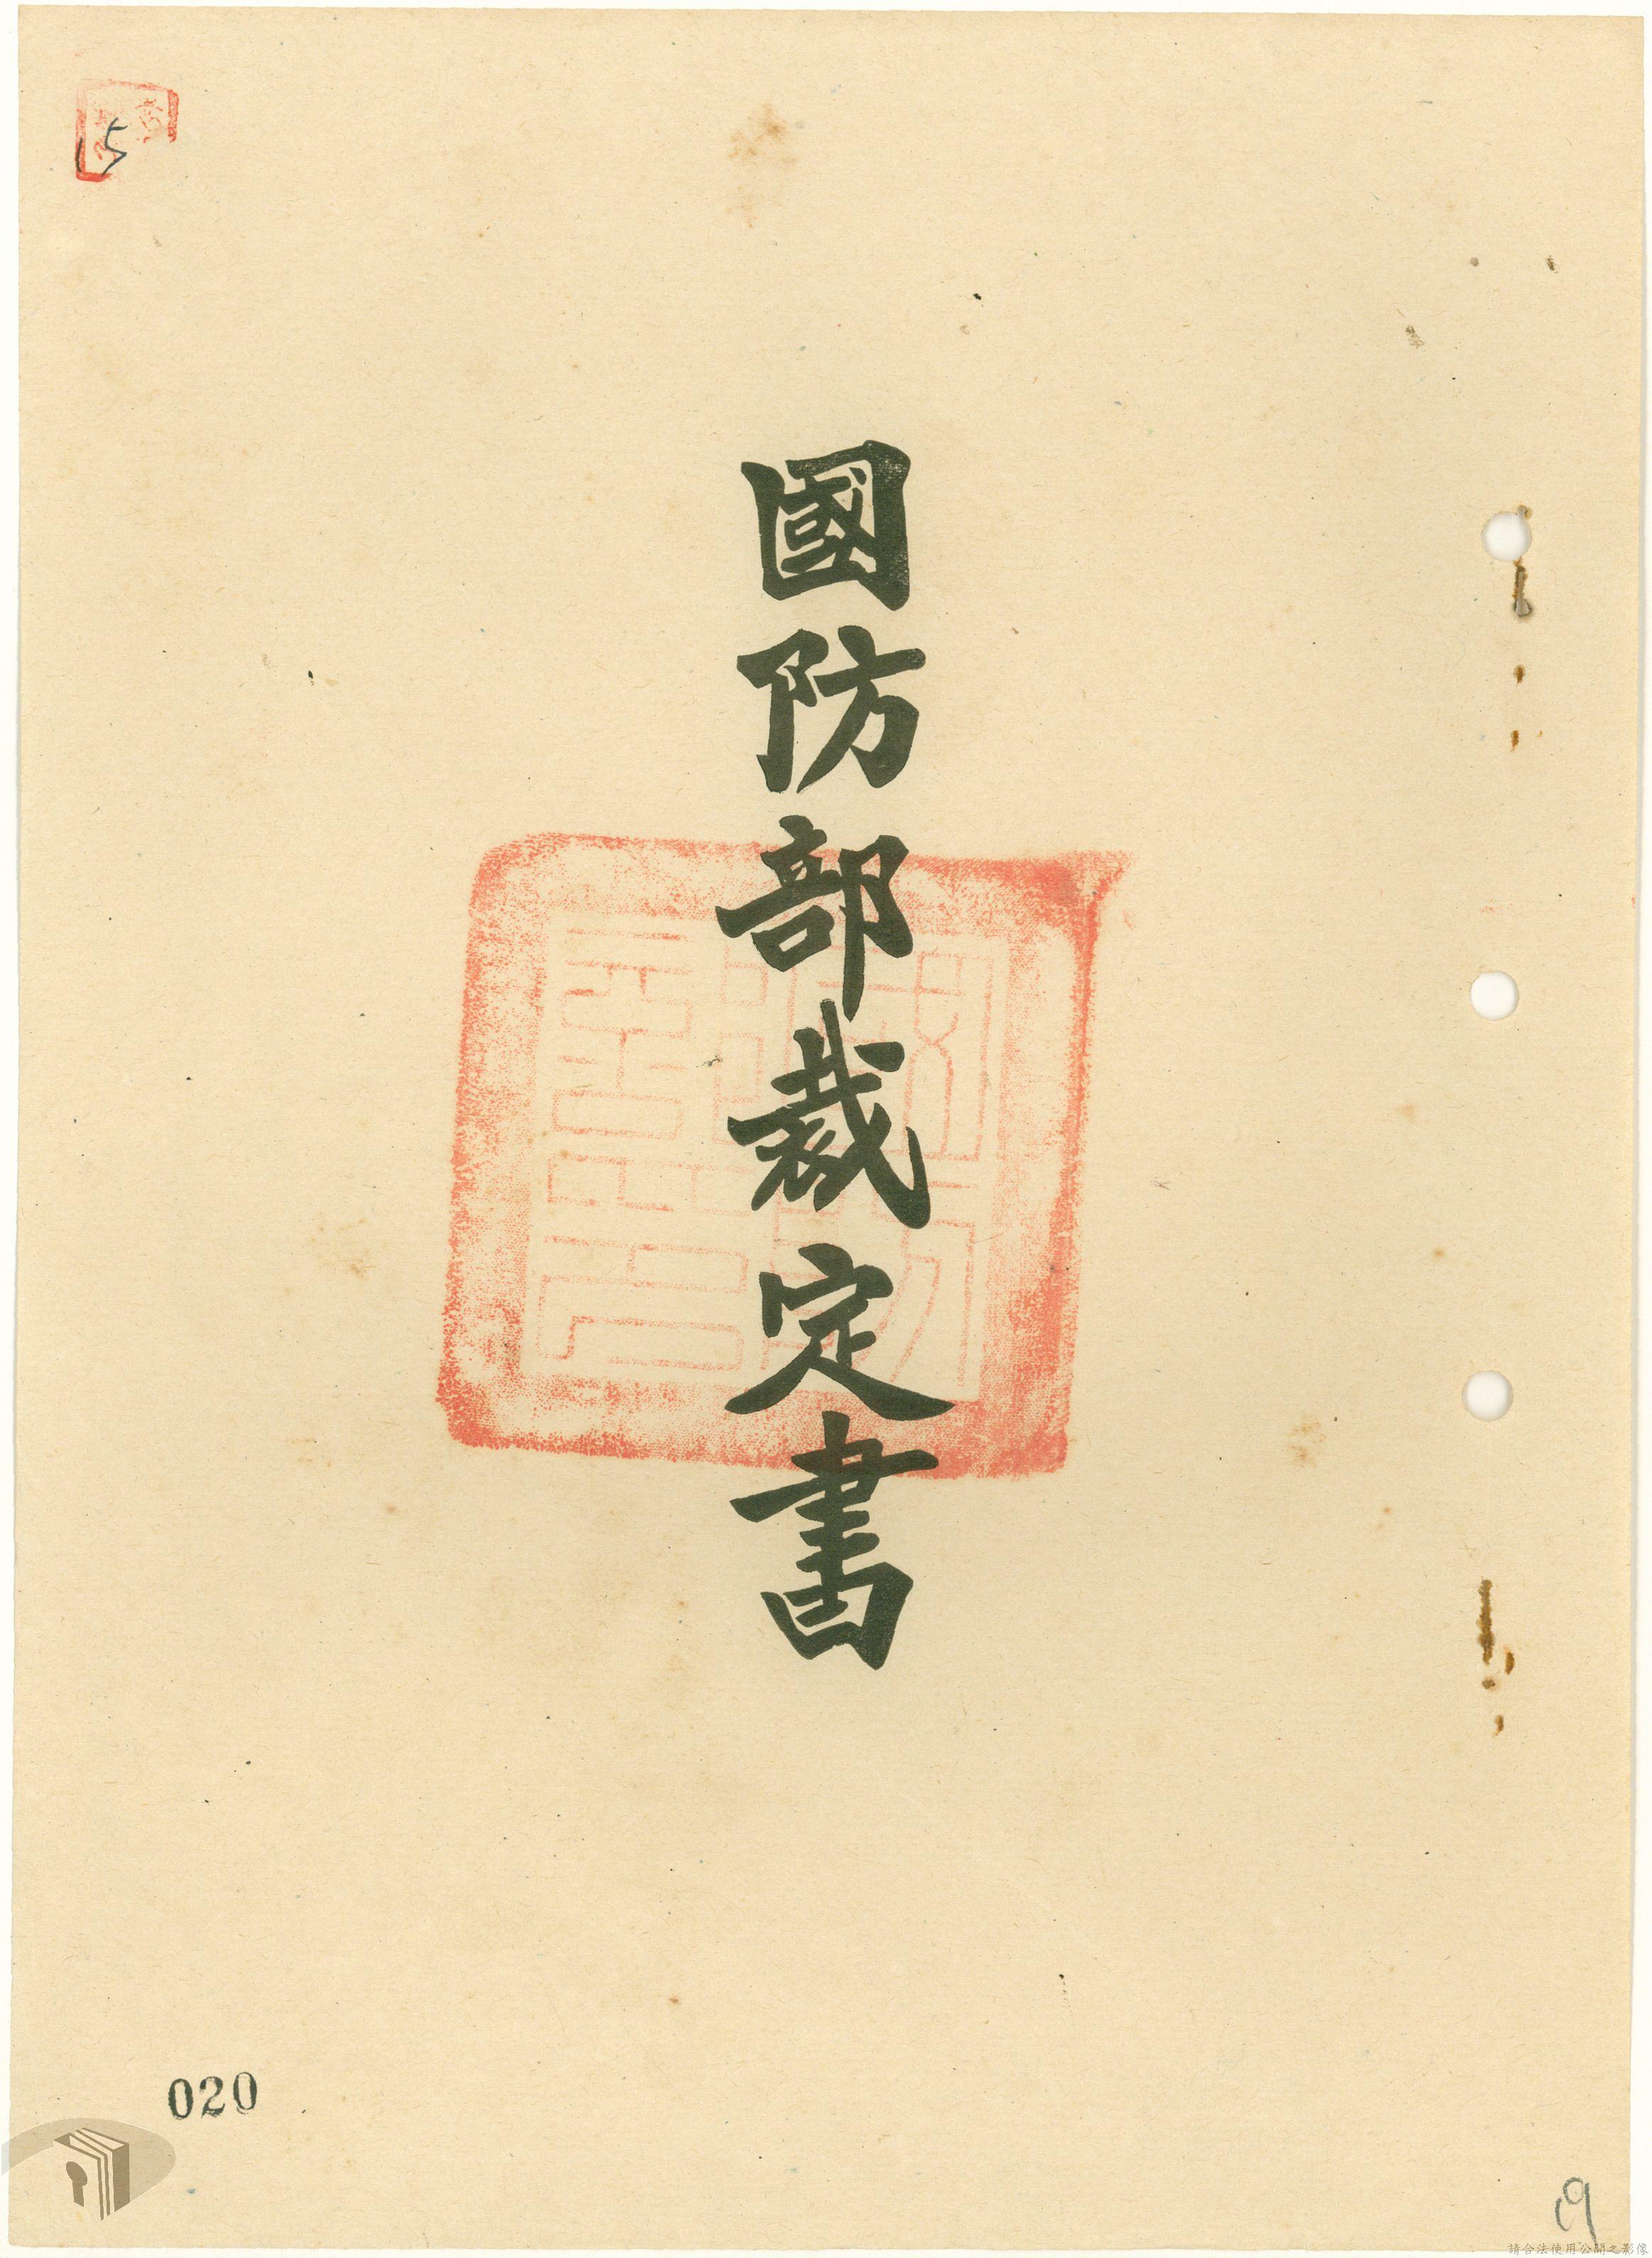 15
國防部裁定書
020
19
請合法使用公開之影像